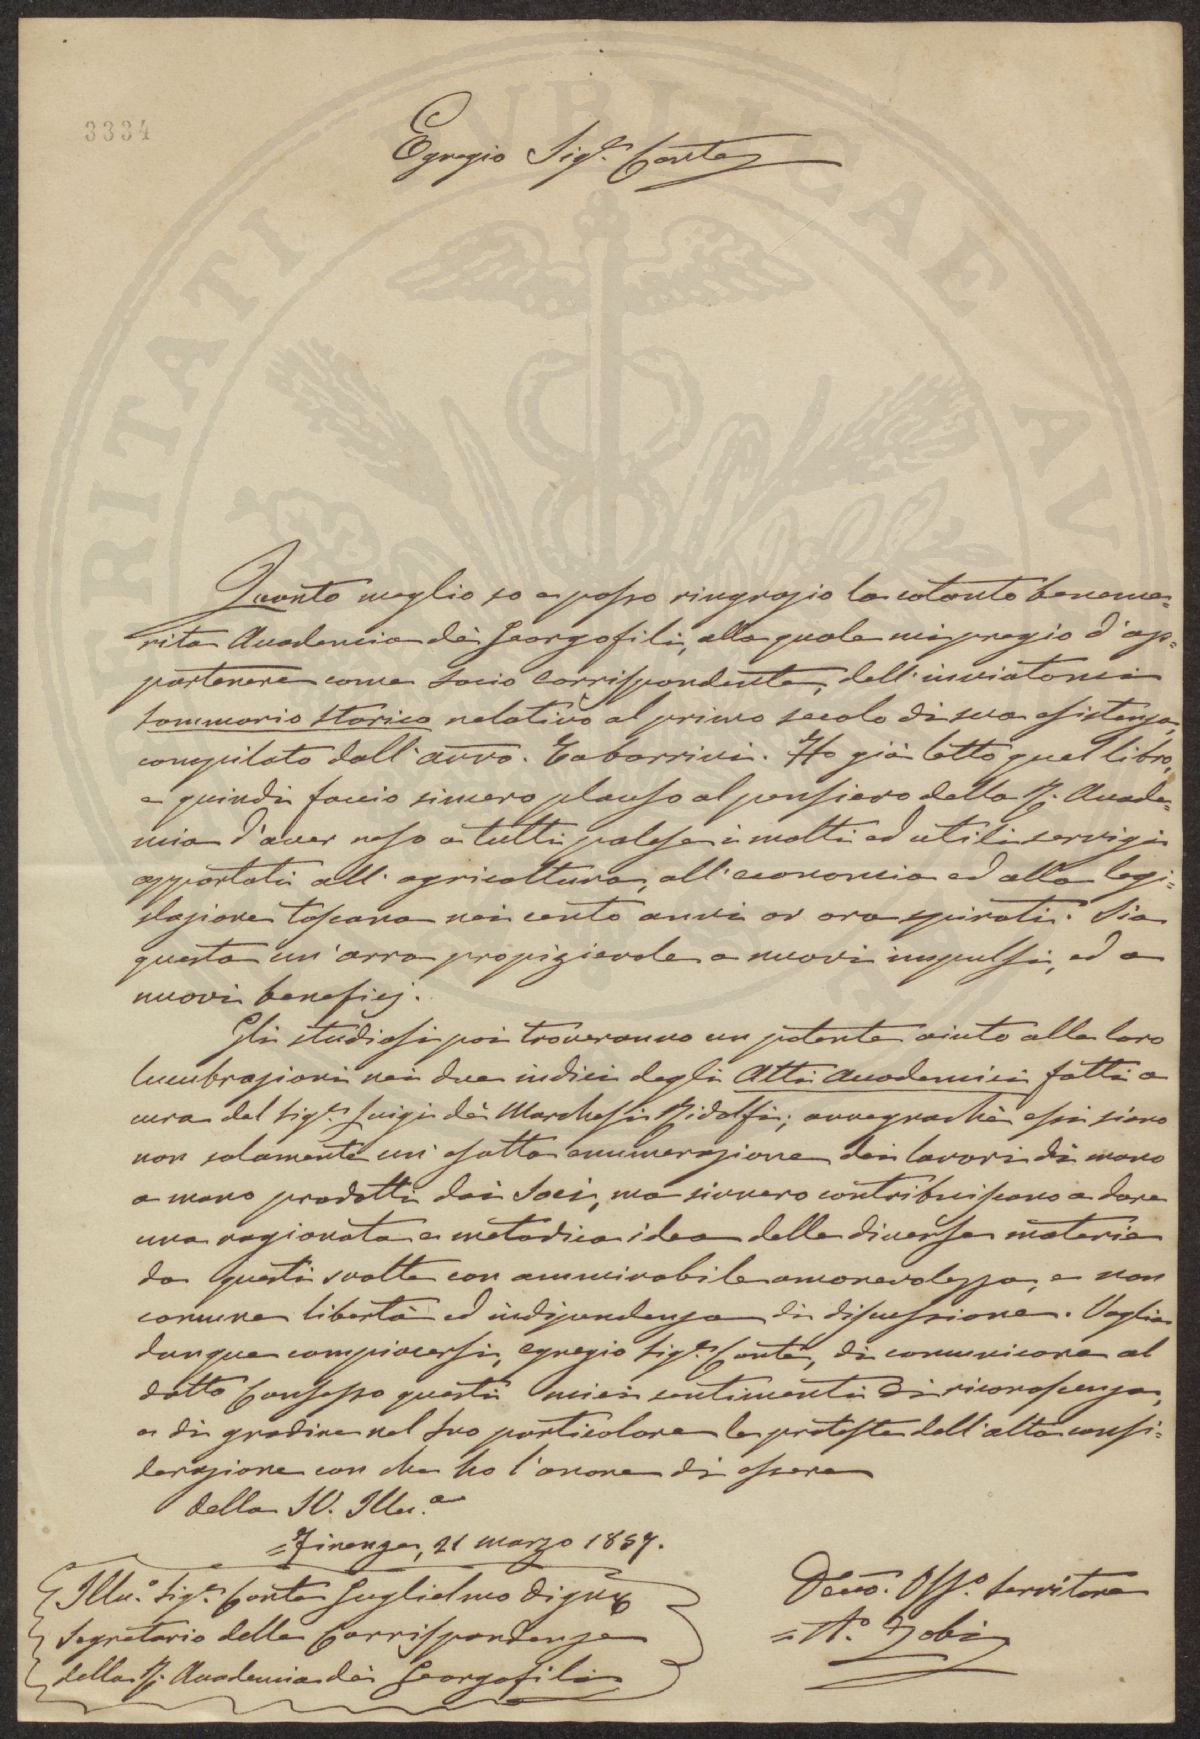 3334
Egregio Sig.r Conte
Quanto meglio so e posso ringrazio la cotanto beneme=
rita Accademia dei Georgofili, alla quale mi pregio d'ap=
partenere come socio corrispondente, dell'inviatomi
sommario storico relativo al primo secolo di sua esistenza,
compilato dall'avvo. Tabarrini. Ho già letto quel libro,
e quindi faccio sincero plauso al pensiero della R. Accade=
mia d'aver reso a tutti palese i molti ed utili servigi
apportati all'agricoltura, all'economia ed alla legi=
slazione toscana nei cento anni or ora spirati. Sia
questa un'arra propizievole a nuovi impulsi, ed a
nuovi beneficj.
Gli studiosi poi troveranno un potente aiuto alle loro
lucubrazioni nei due indici degli Atti Accademici fatti a
cura del Sig.r Luigi dei Marchesi Ridolfi; avvegnachè essi siano
non solamente un'esatta enumerazione dei lavori di mano
a mano prodotti dai Soci, ma sivvero contribuiscano a dare
una ragionata e metodica idea delle diverse materie
da questi svolte con ammirabile amorevolezza, e non
comune libertà ed indipendenza di discussione. Voglia
dunque compiacersi, egregio Sig.r Conte, di comunicare al
dotto Consesso questi miei sentimenti di riconoscenza,
e di gradire nel Suo particolare le proteste dell'alta consi=
derazione con che ho l'onore di essere
della SV. Illu.a
=Firenze, 21 marzo 1857.
Illu.o Sig.r Conte Guglielmo Digny
Segretario delle Corrispondenze
della R. Accademia dei Georgofili
Devo. Obb.o Servitore
=A.o Zobi
UTILITATI PUBLICAE AU